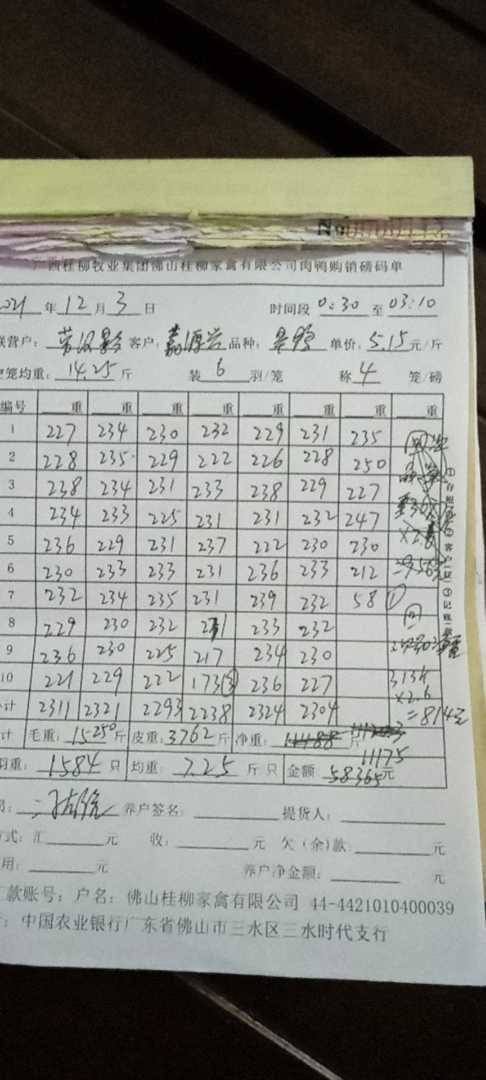 广西桂柳牧业集团佛山桂柳家禽有限公司肉鸭购销磅码单
2021 年 12 月 3 日 时间段 0:30 至 03:10
联营户: 客户: 嘉源兴 品种: 单价: 5.15 元/斤
空笼均重: 14.25 斤 装 6 羽/笼 称 4 笼/磅
编号 重 重 重 重 重 重 重 重
1 227 234 230 232 229 231 235
2 228 235 229 222 226 228 250
3 238 234 231 233 238 229 227
4 234 233 225 231 231 232 247
5 236 229 231 237 222 230 230
6 230 233 233 231 236 233 212
7 232 234 235 231 239 232 58 ①
8 229 230 232 233 232
9 236 230 225 217 234 230
10 221 229 222 173 ③ 236 227
计 2311 2321 2293 2238 2324 2304
313斤
×2.6
=814元
计 毛重: 15250 斤 皮重: 3762 斤 净重: 斤
11175
羽重: 1584 只 均重: 7.25 斤 只 金额: 58365 元
养户签名: 提货人:
方式: 汇 元 收: 元 欠(余)款: 元
用: 元 养户净金额: 元
款账号: 户名: 佛山桂柳家禽有限公司 44-4421010400039
行: 中国农业银行广东省佛山市三水区三水时代支行